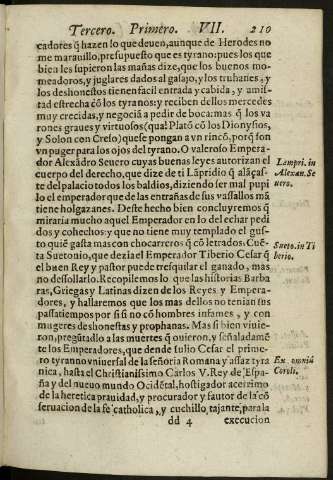 Tercero. Primero. VII. 210
cadores q̃ hazen lo que deuen, aunque de Herodes no
me marauillo, presupuesto que es tyrano: pues los que
bien les supieron las mañas dize, que los buenos mo-
meadoros, y juglares dados al gasajo, y los truhanes, y
los deshonestos tienen facil entrada y cabida, y amis-
tad estrecha cõ los tyranos: y reciben dellos mercedes
muy crecidas, y negociã a pedir de boca: mas q̃ los va
rones graues y virtuosos (qual Platõ cõ los Dionysios,
y Solon con Creso) que se pongan a vn rincõ, porq̃ son
vn puger para los ojos del tyrano. O valeroso Empera-
dor Alexãdro Seuero cuyas buenas leyes autorizan el
cuerpo del derecho, que dize ti Lãpridio q̃ alãças-
te del palacio todos los baldios, diziendo ser mal pupi
lo el emperador que de las entrañas de sus vassallos mã
tiene holgazanes. Deste hecho bien concluyremos q̃
miraria mucho aquel Emperador en lo del echar pedi
dos y cohechos: y que no tiene muy templado el gus-
to quiẽ gasta mas con chocarreros q̃ cõ letrados. Cuẽ-
ta Suetonio, que dezia el Emperador Tiberio Cesar q̃
el buen Rey y pastor puede tresquilar el ganado, mas
no dessollarlo. Recopilemos lo que las historias Barba
ras, Griegas y Latinas dizen de los Reyes y Empera-
dores, y hallaremos que los mas dellos no tenian sus
passatiempos por si si no cõ hombres infames, y con
mugeres deshonestas y prophanas. Mas si bien viuie-
ron, pregũtadlo a las muertes q̃ ouieron, y señaladamẽ
te los Emperadores, que dende Iulio Cesar el prime-
ro tyrano vniuersal de la señoria Romana y assaz tyra
nica, hasta el Christianissimo Carlos V. Rey de Espa-
ña y del nueuo mundo Occidẽtal, hostigador acerrimo
de la heretica prauidad, y procurador y fautor de la cõ
seruacion de la fe catholica, y cuchillo tajante para la
dd 4 execucion
Lampri. in
Alexan. Se
uero.
Sueto. in Ti
berio.
En omniũ
Coroli.